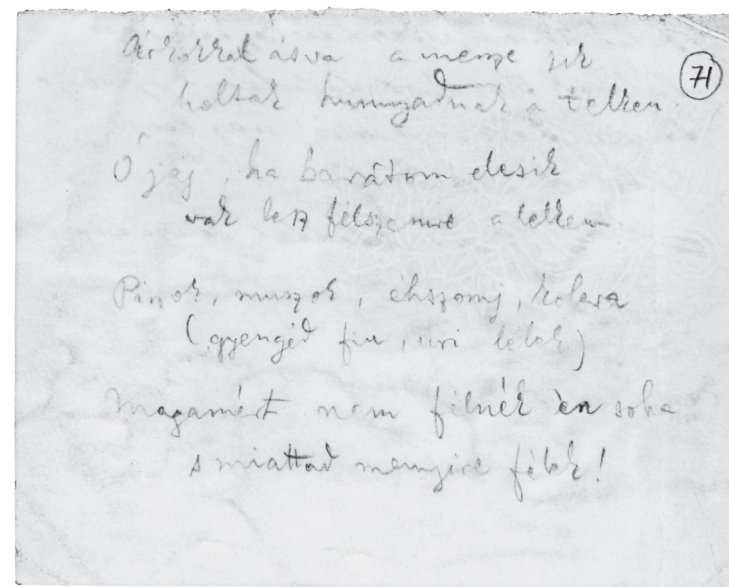 71
Árkokkal ásva a messze sik
holtak hunnyadnak a telken.
Ó jaj, ha barátom elesik
vak lesz félszemre a lelkem.
Piszok, muszok, éhszomj, kolera
(gyengéd fiu, uri lélek)
Magamért nem félnék én soha
s miattad mennyire félek!